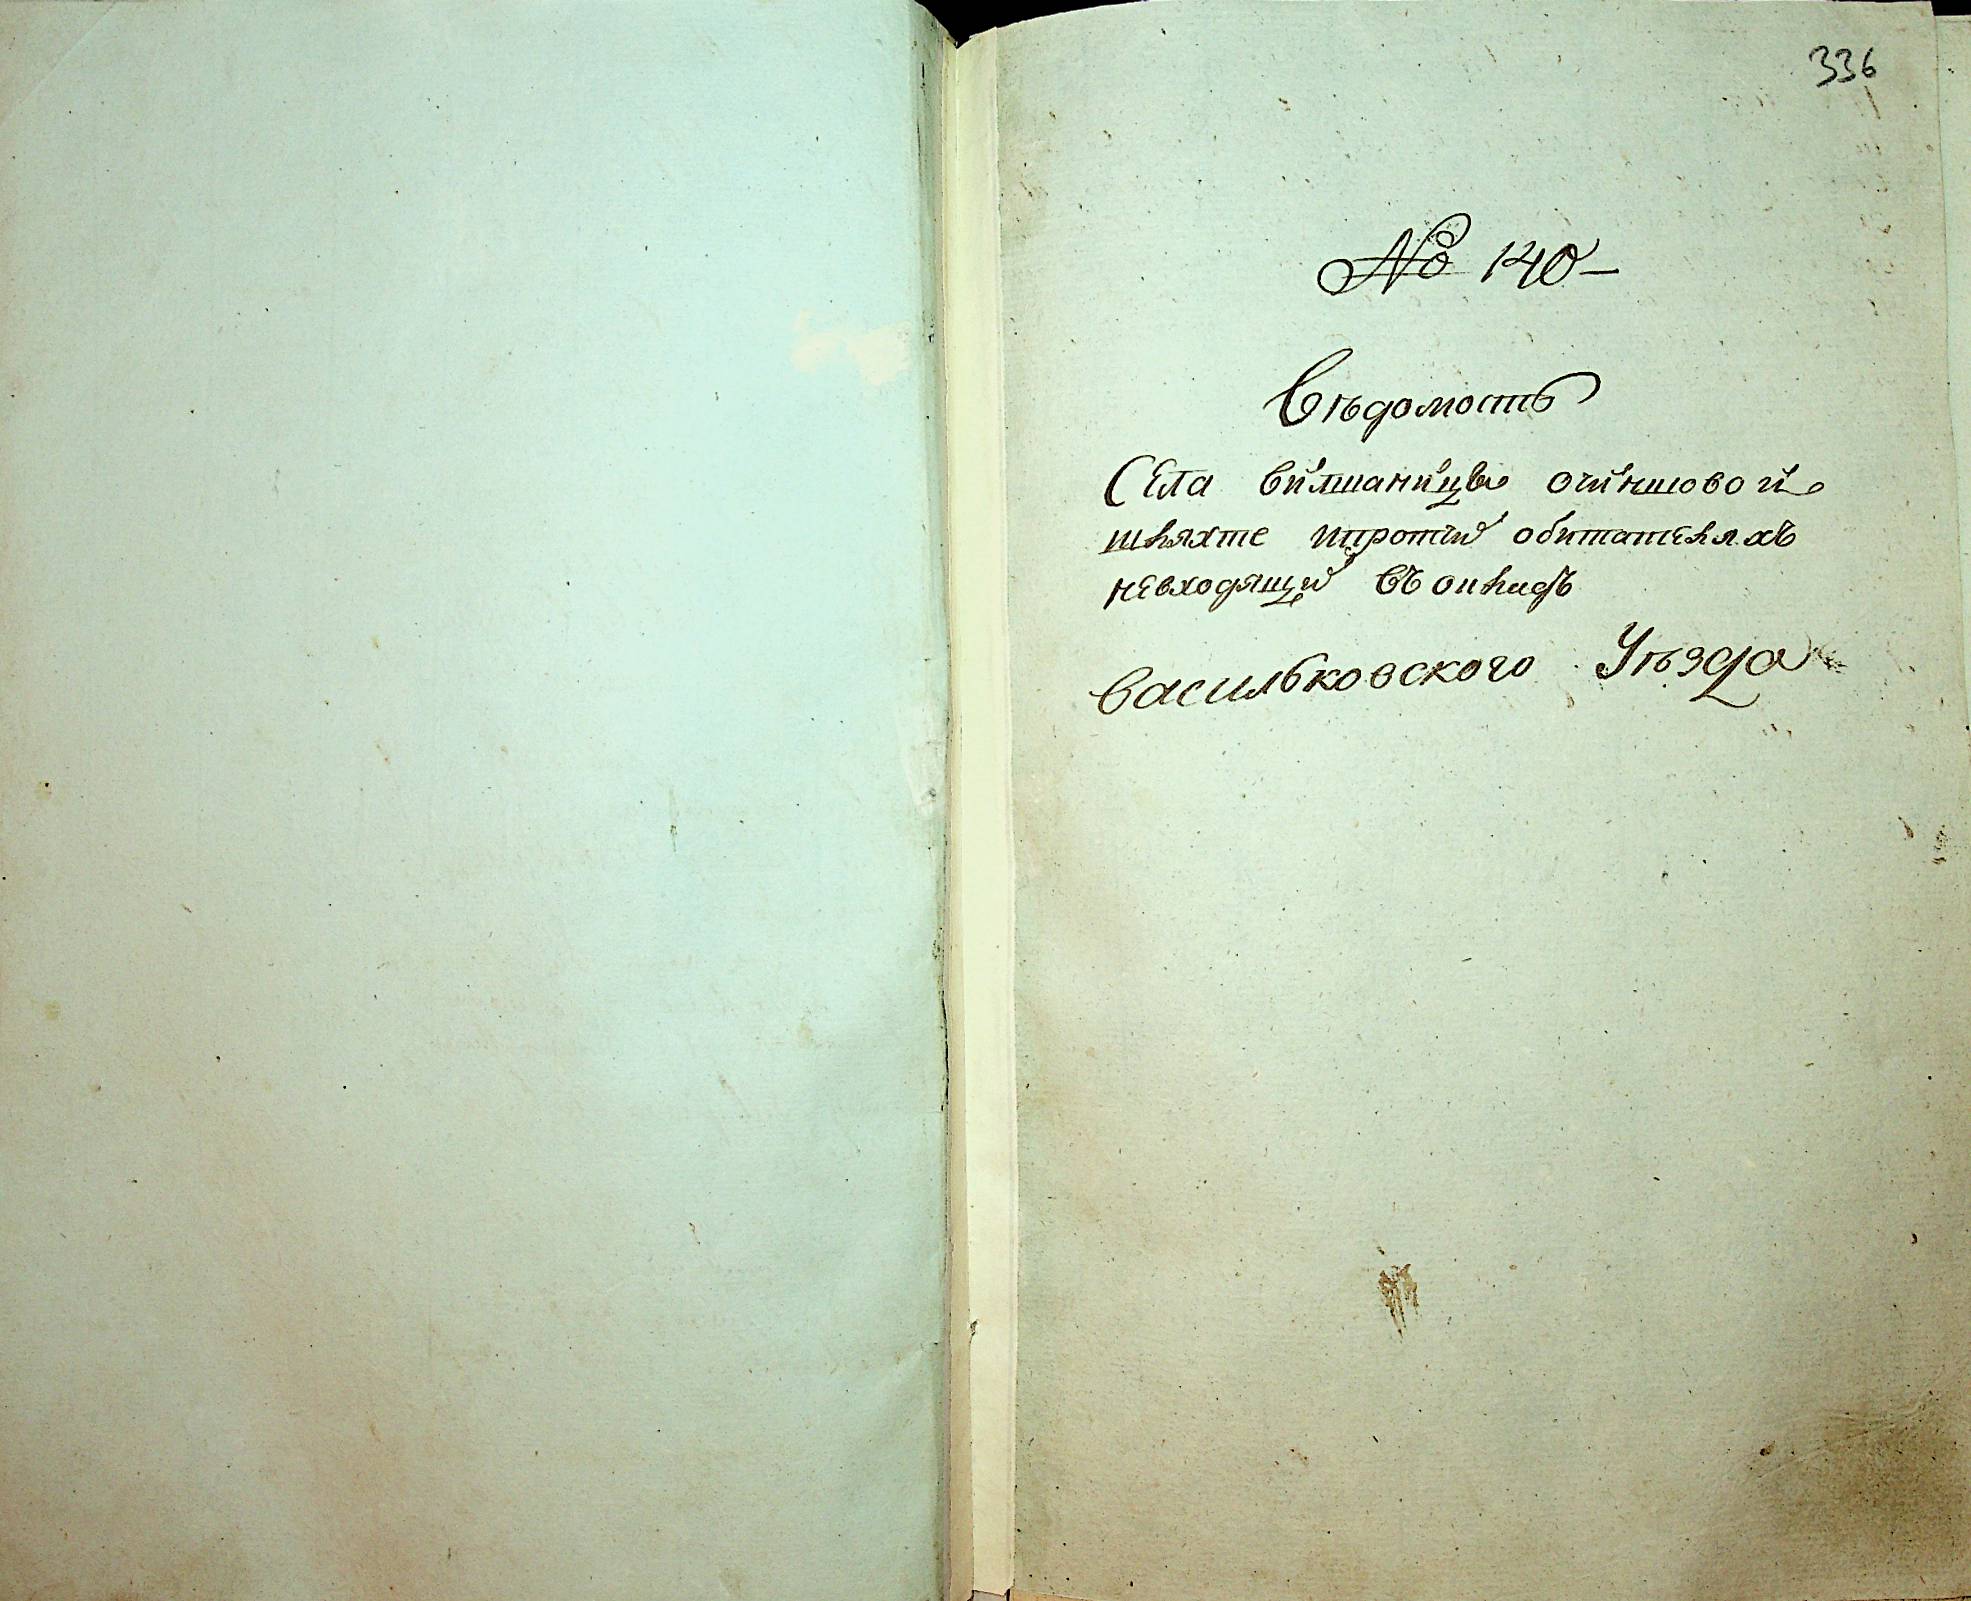 336
№ 140 –
Вѣдомость
Села вилшаницы очиншовой
шляхте ипротчи обитателяхъ
невходящи въ окладъ
васильковского Уѣзда